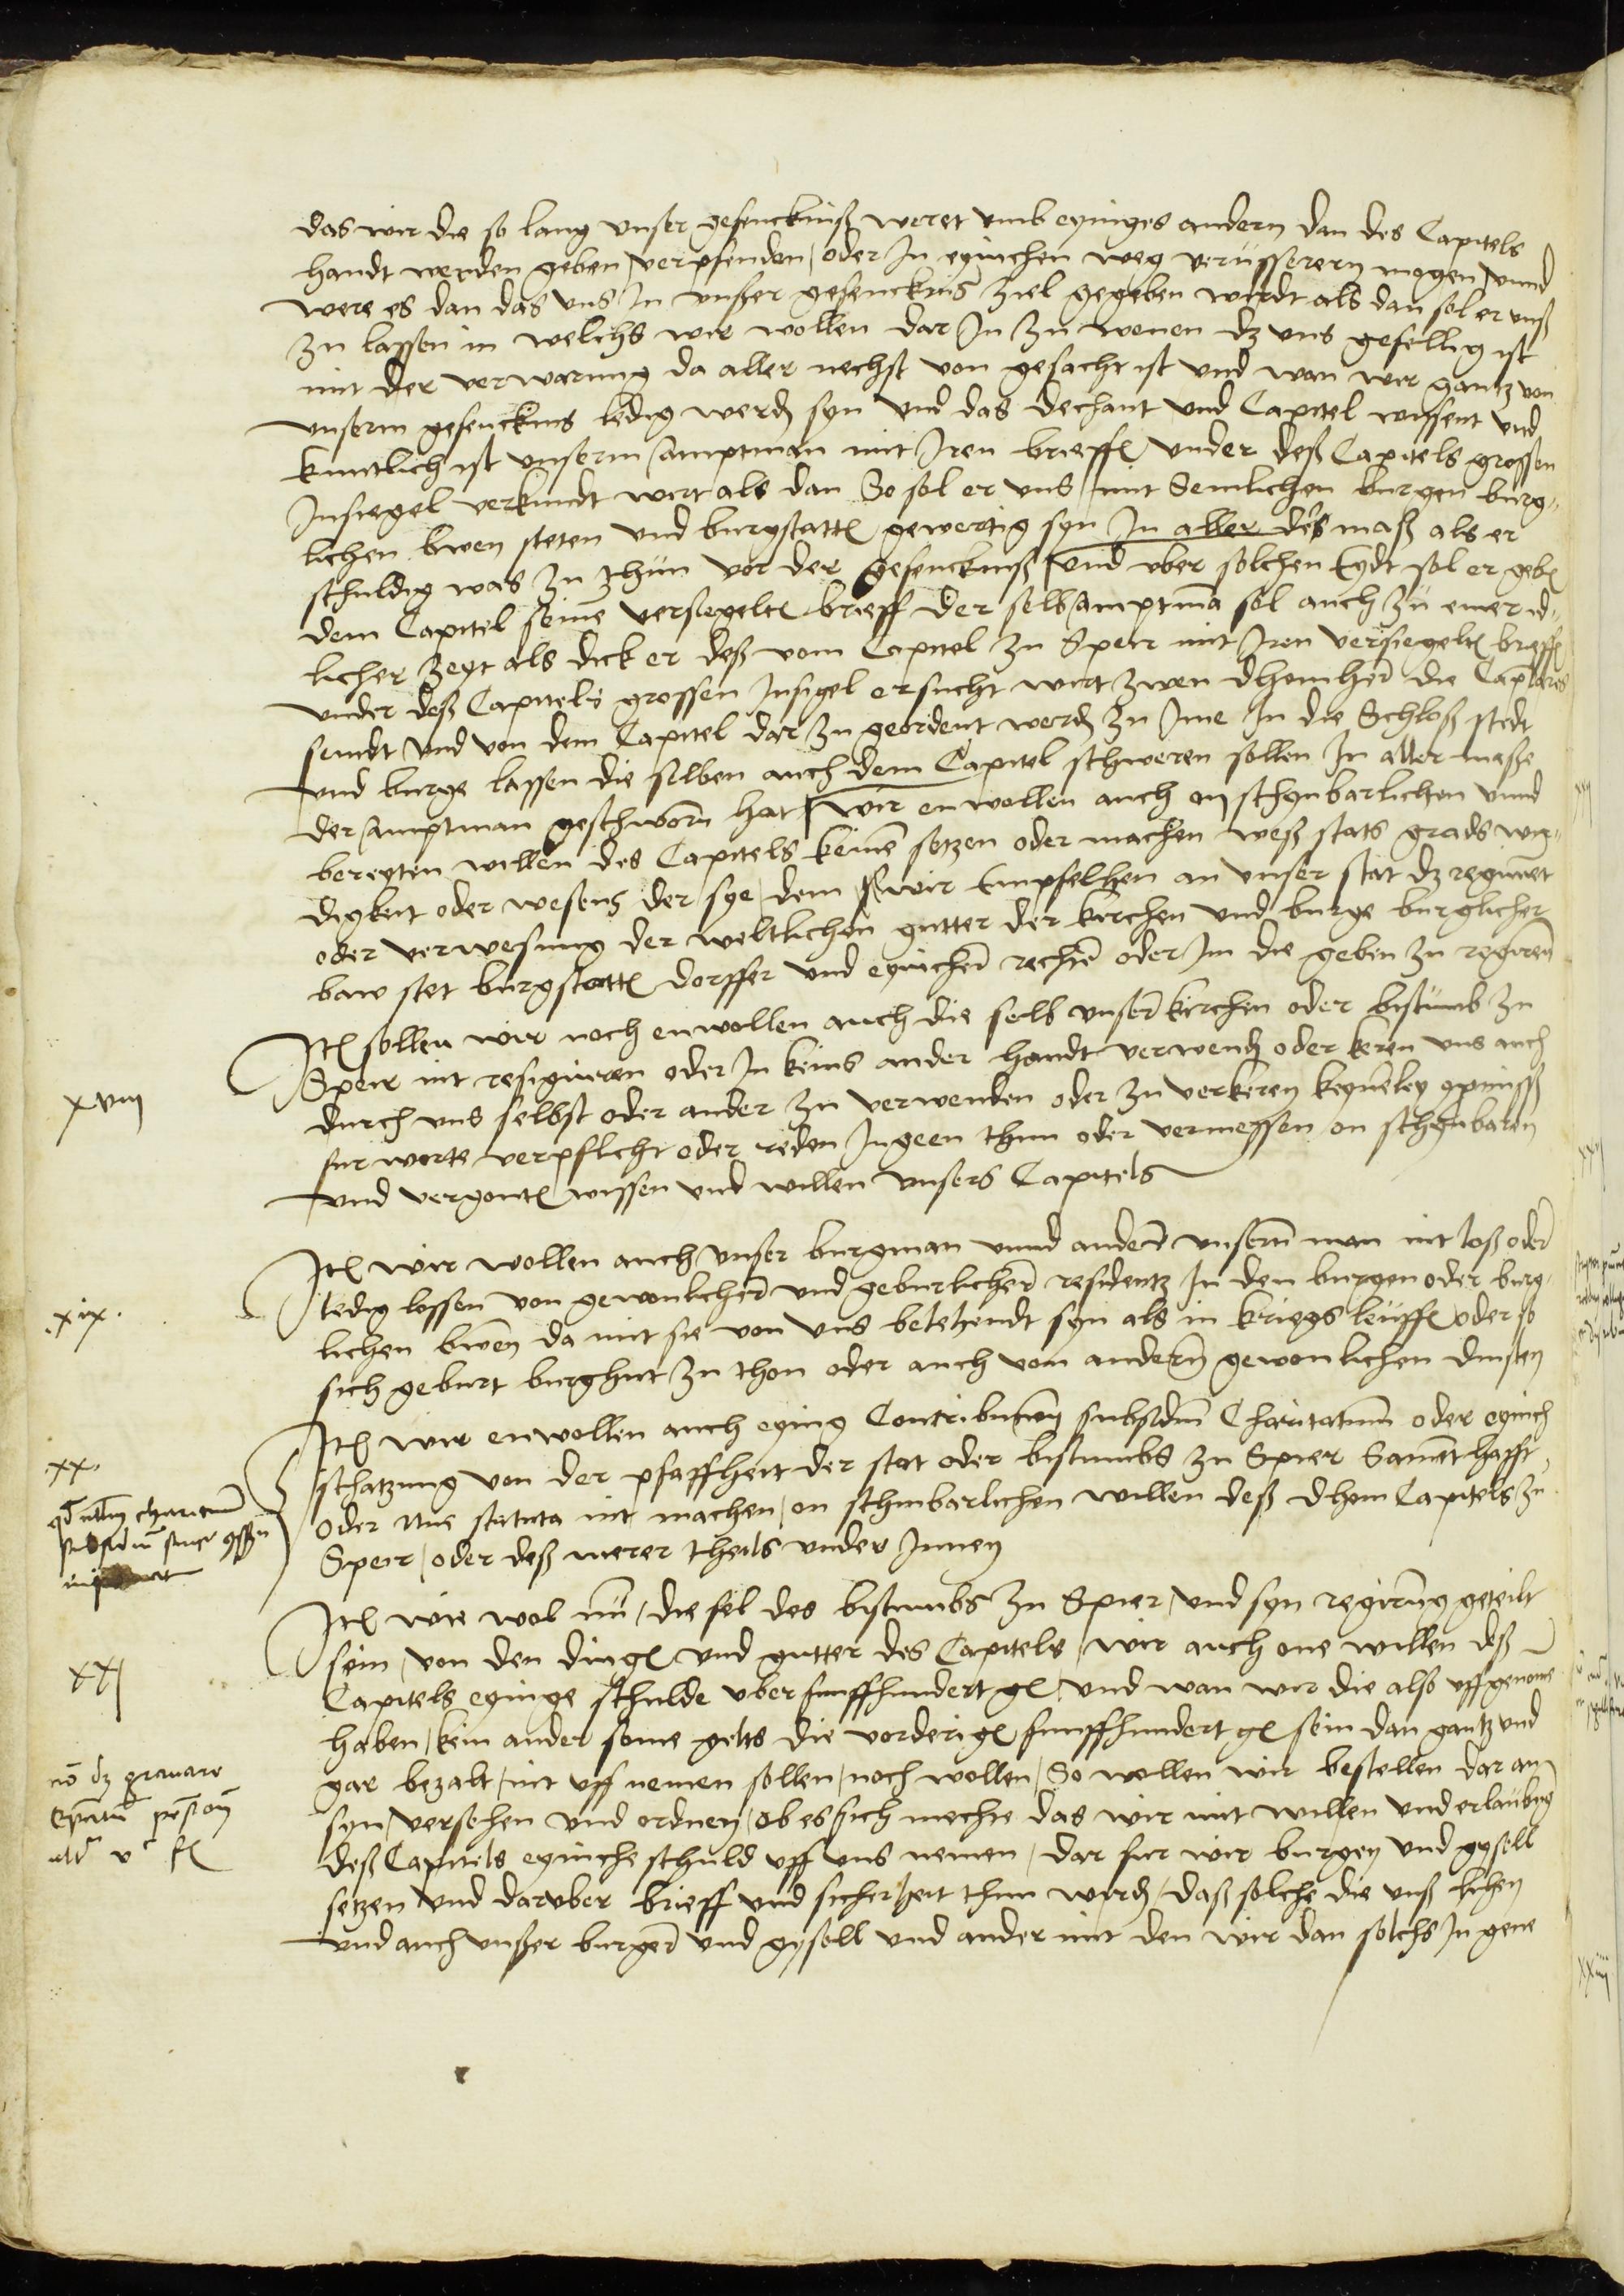 das wir die so lang unser gefenckniß weret umb eyniges andern dan des Capitels
handt werden geben / verpfenden / oder In eynichen weg verusserern mogen / unnd
were es dan das uns In unser gefenckniß ziel gegeben wurdt als dan sol er unß
zu lassen in welchs wir wollen dar In zu wonen dz uns gefellig ist
mit der verwarung da aller nechst von gesacht ist und wan wir gantz von
unserm gefencknis ledig werdē syn und das dechant und Capitel wissent und
kuntlich ist unserm amptman mit Iren brieffē under deß Capitels grossen
Insiegel verkundt wirt als dan So sol er uns mit Semlichen burgen burg-
lichen bwen steten und burgstattē gewertig syn In aller der maß als er
schuldig was zu thun vor der gefenckniß / und uber solchen Eydt sol er gebē
dem Capitel seinē versiegeltē brieff der selb amptmā sol auch zu einer id-
licher zeyt als dick er deß vom Capitel zu Speir mit Iren versiegeltē brieffē
under deß Capitels grossen Insigel ersucht wirt zwen dhomherr̄ die Caplares
seindt und von dem Capitel dar zu geordent werdē zu Ime In die Schloß stedt
und burge lassen die selben auch dem Capitel schweren sollen In aller maße
der amptman geschworn̄ hat / wir enwollen auch on schynbarlichen unnd
bereyten willen des Capitels keinē setzen oder machen weß stats grads wir-
digkeit oder wesens der sye / dem wir Empfelhen an unser stat dz regiment
oder verwesung der weltlichen gutter der kirchen und burge burglicher
baw stet burgstattē dorffer und eynicher̄ rechtē oder Im die geben zu regiren̄
Itē sollen wir noch enwollen auch die selb unser̄ kirchen oder bistumb zu
xviij
Speir nit resigniren oder In keins ander handt verwendē oder keren uns auch
durch uns selbst oder ander zu verwenden oder zu verkeren keynerley
fur worte verpflicht oder reden Ingeen thun oder vermessen on schynbaren
und vergontē wissen und willen unsers Capitels
Itē wir wollen auch unser burgman unnd ander̄ unsern̄ man nit loß oder
xix.
ledig lossen von gewonlicher̄ und geburlicher̄ residentz In den burgen oder burg-
lichen bwen̄ da mit sie von uns belehendt syn als in kriegs leuffē oder so
sich geburt burghut zu thon oder auch von andern̄ gewonlichen dinsten
Itē wir enwollen auch eynig Contribution̄ subsidiū Charitatiuū oder eynich
xx.
schatzung von der pfaffheit der stat oder bistumbs zu Spier Samethafft
oder nue statuta nit machen / on schinbarlichen willen deß dhom Capitels zu
Speir / oder deß merer theils under Innen
Itē wie wol nū / die sel des bistumbs zu Spier / und syn regirung geteilt
xxj
sein / von den dingē und gutter des Capitels / wir auch one willen deß
Capitels eynige schulde uber funffhundert gē / und wan wir die also uffgenomē
haben / kein ander some gelts die vorderigē funffhundert gē sein dan gantz und
gar bezalt / nit uff nemen sollen / noch wollen / So wollen wir bestellen dar an
nō dz gravare
syn / versehen und ordnen / ob es sich mechte das wir mit willen und erlaubng
deß Capitels eyniche schuld uff uns nemen / dar fur wir burgen und gysell
setzen und daruber brieff und sicherheit thun wurdē / daß solche die unß lihen
und auch unßer burger̄ und gysell und ander mit den wir dan solchs In gene